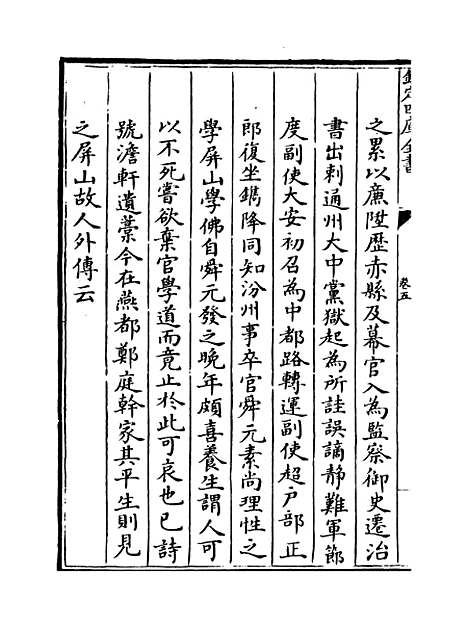 之累以廉陞歴赤縣及幕官入為監察御史遷治
書出刺通州大中黨獄起為所詿誤謫静難軍節
度副使大安初召為中都路轉運副使超户部正
郎復坐鐫降同知汾州事卒官舜元素尚理性之
學屏山學佛自舜元發之晚年頗喜養生謂人可
以不死嘗欲棄官學道而竟止於此可哀也已詩
號澹軒遺藁今在燕都鄭庭幹家其平生則見
之屏山故人外傳云
欽定四庫全書
卷五